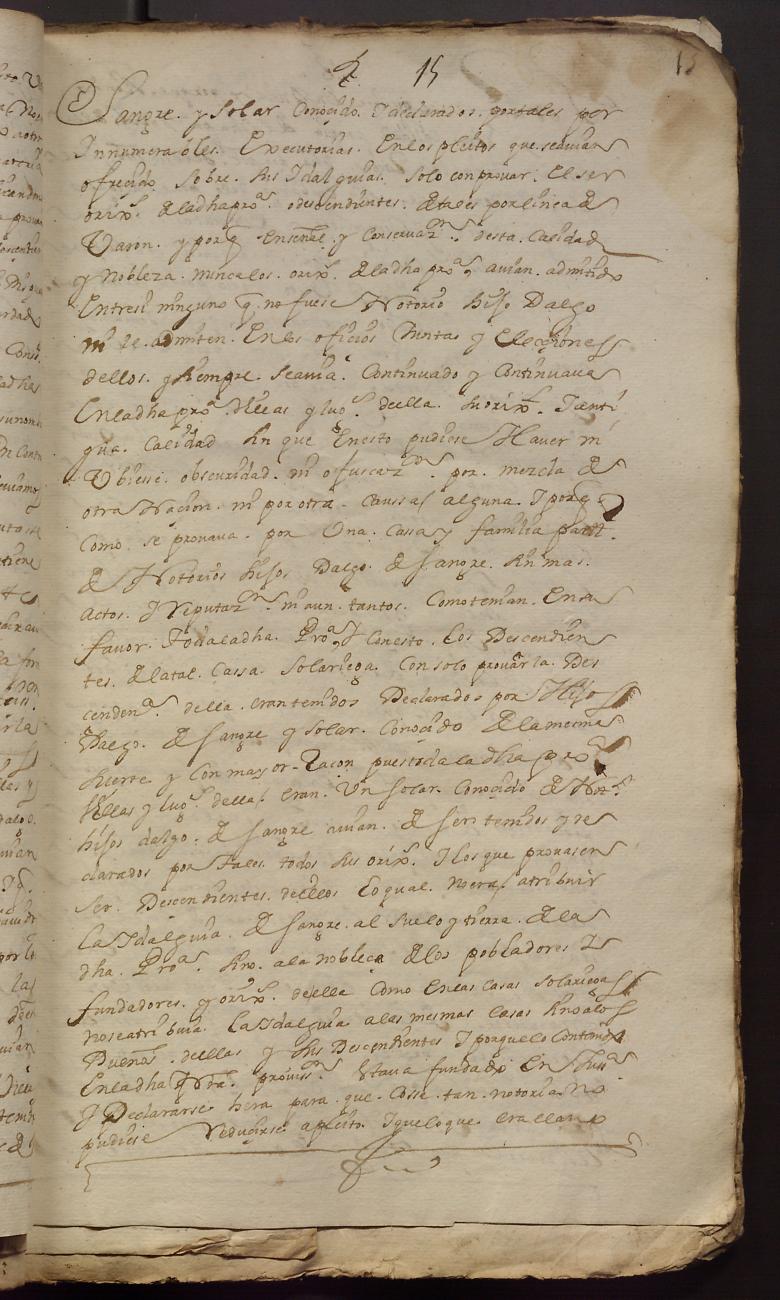 15 15
Sangre. y Solar Conocido. I declarados. portales por
Innumerables. Executorias. Enlos pleitos que. seavian
ofrecido Sobre. sus Idalguias. solo con provar. El ser
orixs. dela dha proa. o descendientes. de tales por linea de
Varon. y por q Enseñal y Conservazon. desta. Calidad
y Nobleza. nunca los. orixs. dela dha proa avian. admitido
Entresi ninguno q. no fuese Notorio hijo Dalgo
ni le. admiten. Enlos oficios Juntas y Elecçiones
dellos. y siempre. seavia. Continuado y Continuava
Enla dha proa. Villas y lugs. de ella. su orixn. I anti
gua. Calidad sin que Enesto pudiese Haver ni
Vbiesse. obscuridad. ni ofuscazon. por. mezcla de
otra Nacion. ni por otra. Caussa alguna. I por q
Como. se provava. por Una. Cassa y familia partt.
de Notorios hijos Dalgo. de sangre. sin mas.
Actos. I reputazon. ni aun. tantos. Como tenian. En su
favor. Toda la dha. Proa y Conesto. los Descendien
tes. dela tal. Cassa. Solariega. Con solo provar la. Des
cendena. della. eran tenidos Declarados por Hijos
Dalgo. de sangre y solar. Conocido de la mesma
suerte y Con mayor Raçon pues toda la dha proa
Villas y lugs. della. eran. Un solar. Conocido de Nots.
hijos dalgo. de sangre avian. de ser tenidos y de
clarados por Tales. todos sus orixs. I los que provasen
ser. Descendientes. de ellos lo qual. no era. atribuir
La Idalguia. de sangre. al suelo y tierra. de la
dha. Proa. sino. a la nobleça de los pobladores I
fundadores. y orixs. de ella Como En las casas solariegas
no se atribuia. La Idalguia a las mesmas Casas sino a los
Dueños. dellas y sus Descendientes I porque lo Contenido
En la dha Nra. provisn. Estava fundado En Justa
I Declararse hera para que. Cosse. tan. notoria No
pudiese reduçirse a pleito. I que lo que. era llano